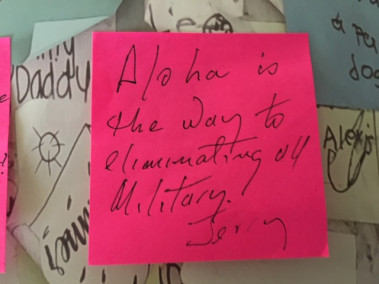 Daddy
Aloha is
the way to
eliminating all
Military.
Jerry
Alexis
& Pu
dog